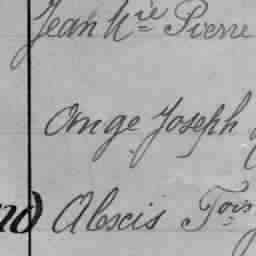 Jean Mie Pierre
Ange Joseph
nd Alexis Fois